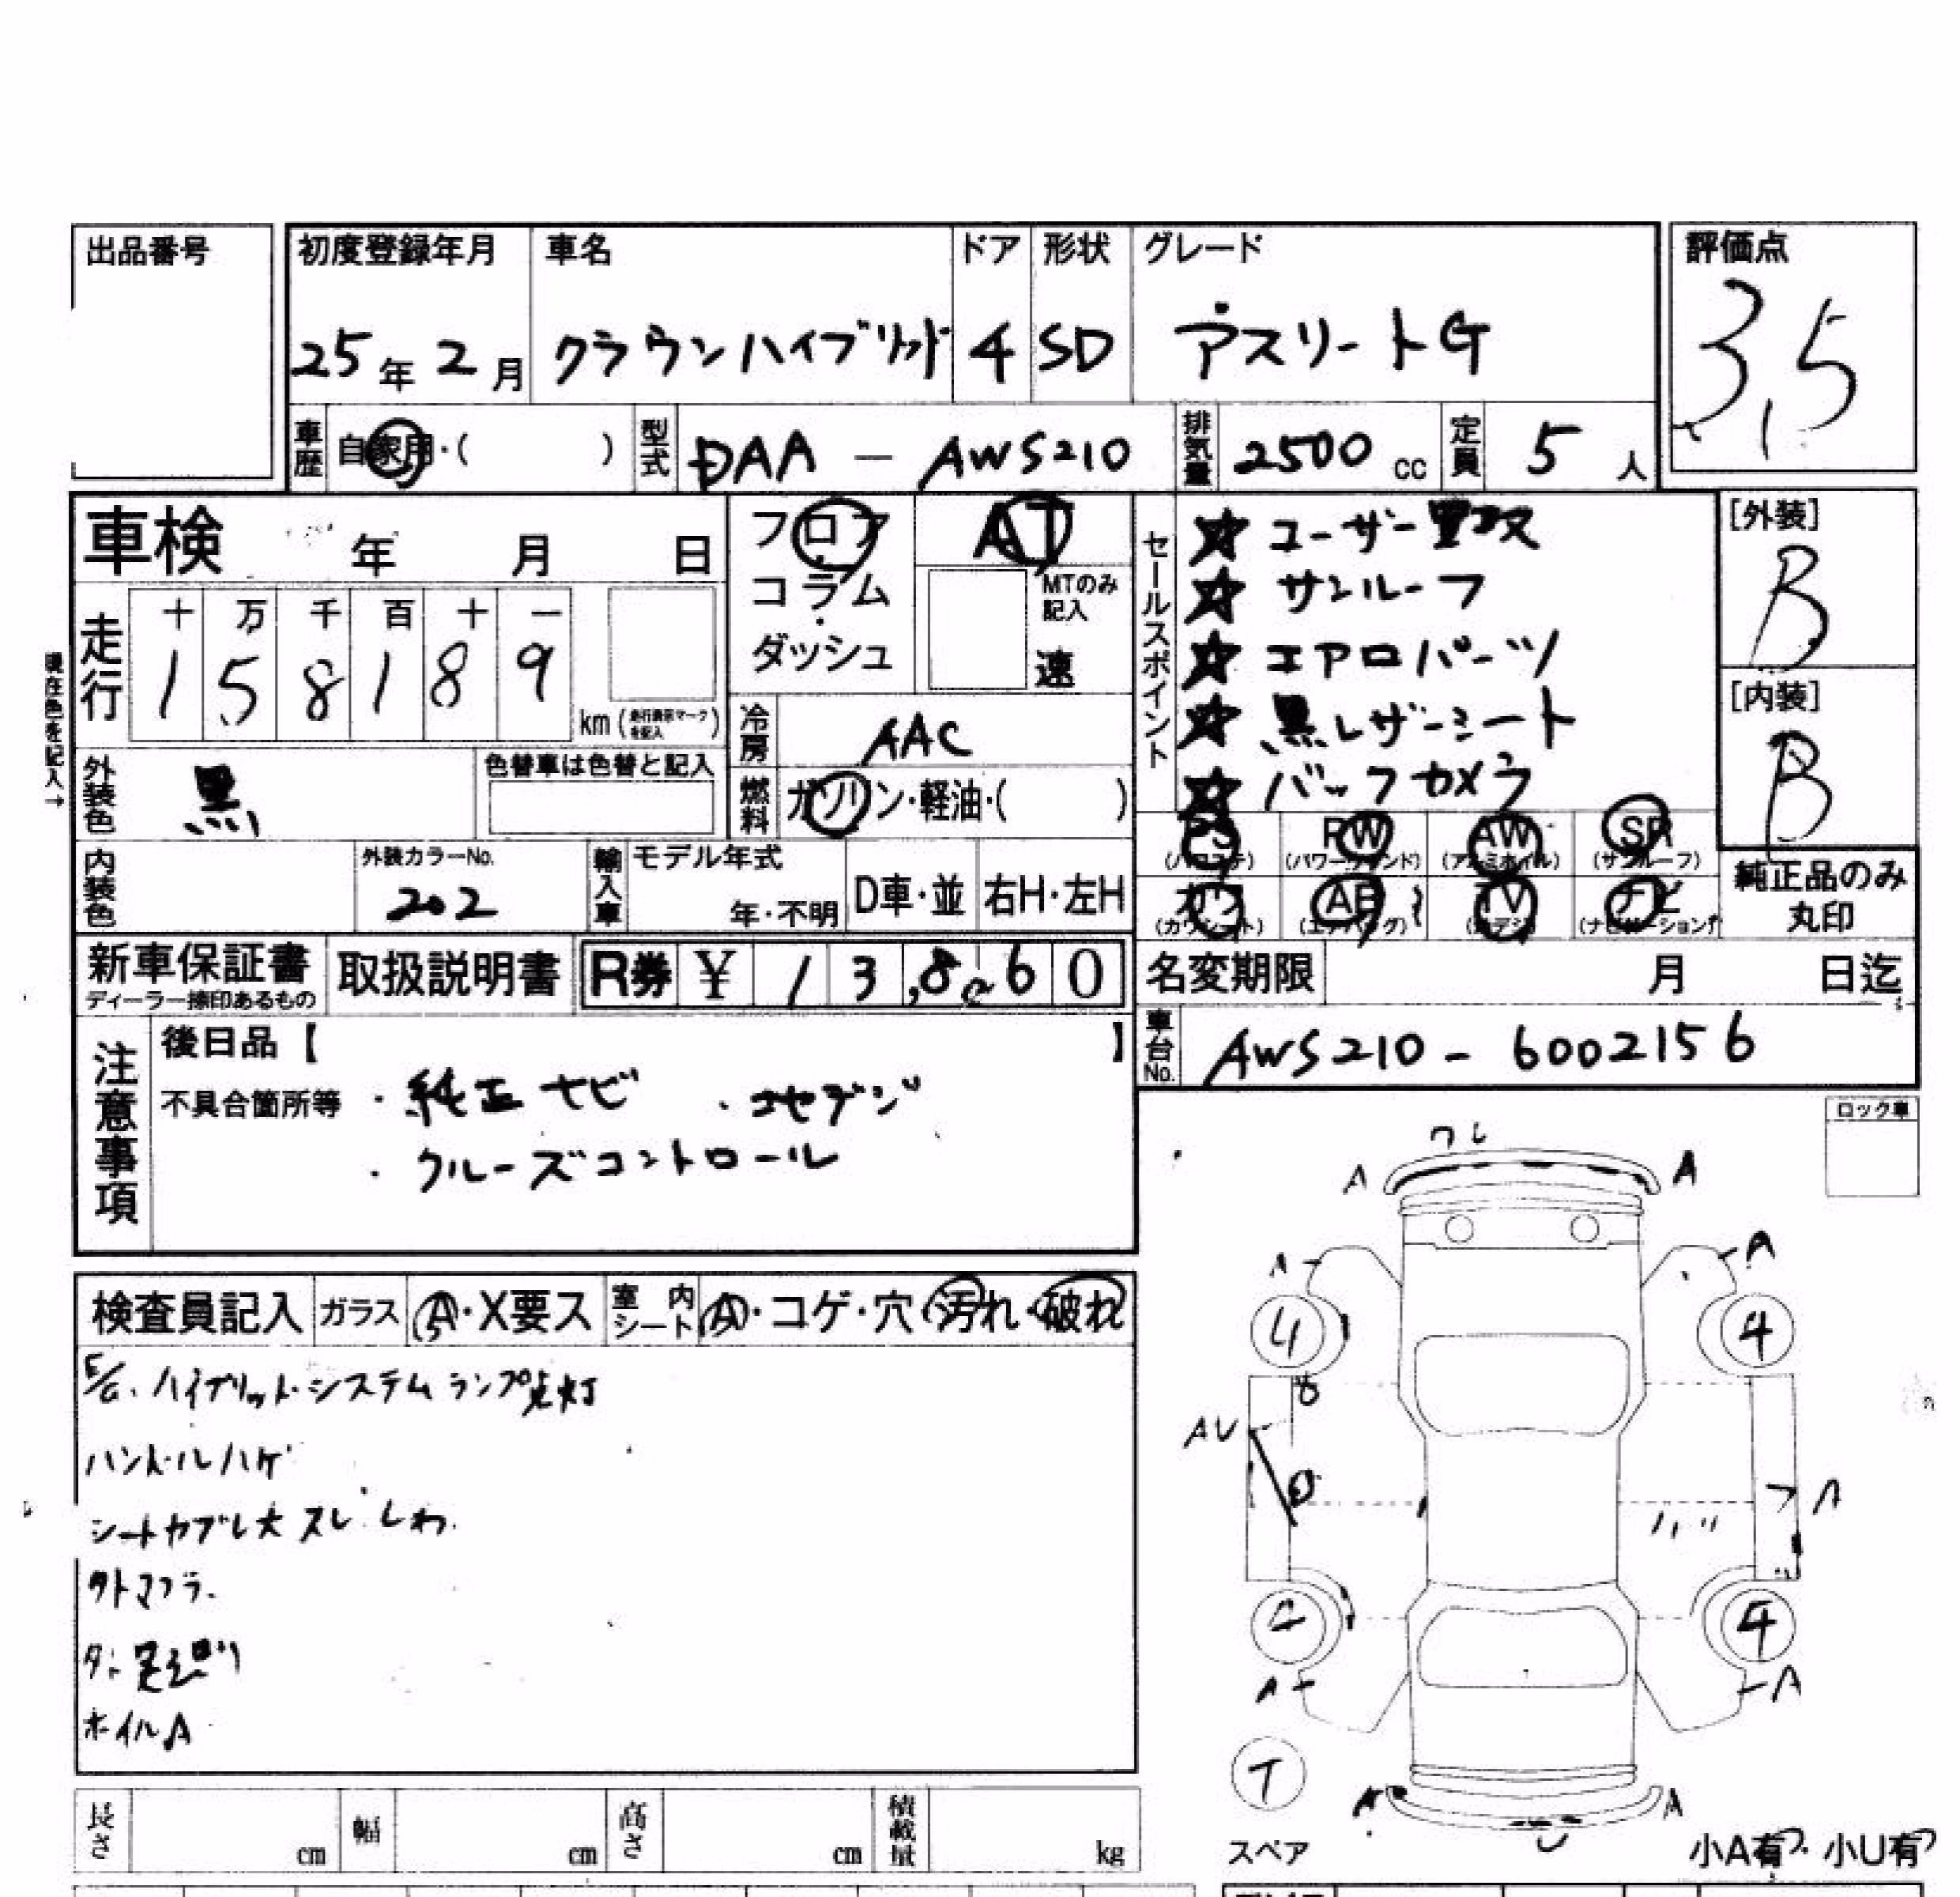 出品番号
初度登録年月 車名 ドア 形状 グレード 評価点
25年2月 クラウンハイブリッド 4 SD アスリートG 3,5
車歴 自家用・( ) 型式 DAA - AWS210 排気量 2500cc 定員 5人
車検 年 月 日
フロア AT
コラム MTのみ記入
ダッシュ 速
走行 十 万 千 百 十 一
1 5 8 1 8 9 km (走行換算マークを記入)
現在色を記入→
冷房 AAC
外装色 黒 色替車は色替と記入
燃料 ガソリン・軽油・( )
内装色 外装カラーNo. 202
輸入車 モデル年式 年・不明 D車・並 右H・左H
セールスポイント
★ ユーザー買取
★ サンルーフ
★ エアロパーツ
★ 黒レザーシート
★ バックカメラ
[外装] B
[内装] B
PS (パワステ) PW (パワーウィンド) AW (アルミホイル) SR (サンルーフ)
カワ (カワシート) AB (エアバッグ) TV (地デジ) ナビ (ナビゲーション)
純正品のみ丸印
新車保証書 ディーラー捺印あるもの 取扱説明書 R券 ¥ 13,860
名変期限 月 日迄
車台No. AWS210-6002156
注意事項
後日品【 】
不具合箇所等 ・純正ナビ ・フルセグデジ
・クルーズコントロール
ロック車
検査員記入 ガラス A・X要ス 室内シート A・コゲ・穴・汚れ・破れ
E/G、ハイブリットシステムランプ点灯
ハンドルハゲ
シートヤブレ大 スレ しわ
外トマフラ
ホイルA
A A
A A
4 4
AU
A
4
A A
T
A A
スペア
小A有 小U有
長さ cm 幅 cm 高さ cm 積載量 kg